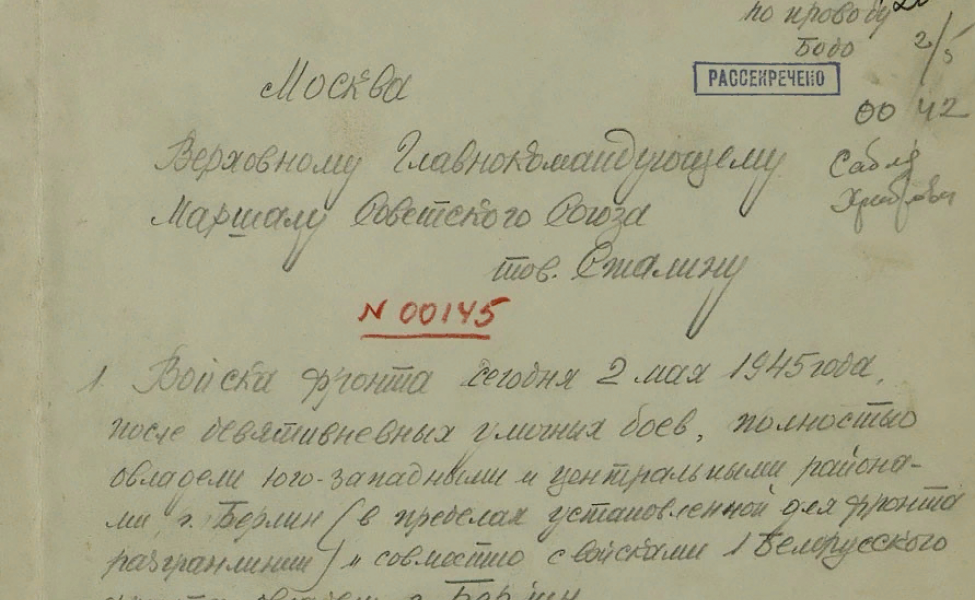 по проводу
Бодо
2/5
РАССЕКРЕЧЕНО
00 42
Москва
Верховному Главнокомандующему
Маршалу Советского Союза
тов. Сталину
N 00145
1. Войска фронта сегодня 2 мая 1945 года,
после девятидневных уличных боев, полностью
овладели юго-западными и центральными района-
ми г. Берлин (в пределах установленной для фронта
разгранлинии) и совместно с войсками 1 Белорусского
фронта овладели г. Берлин